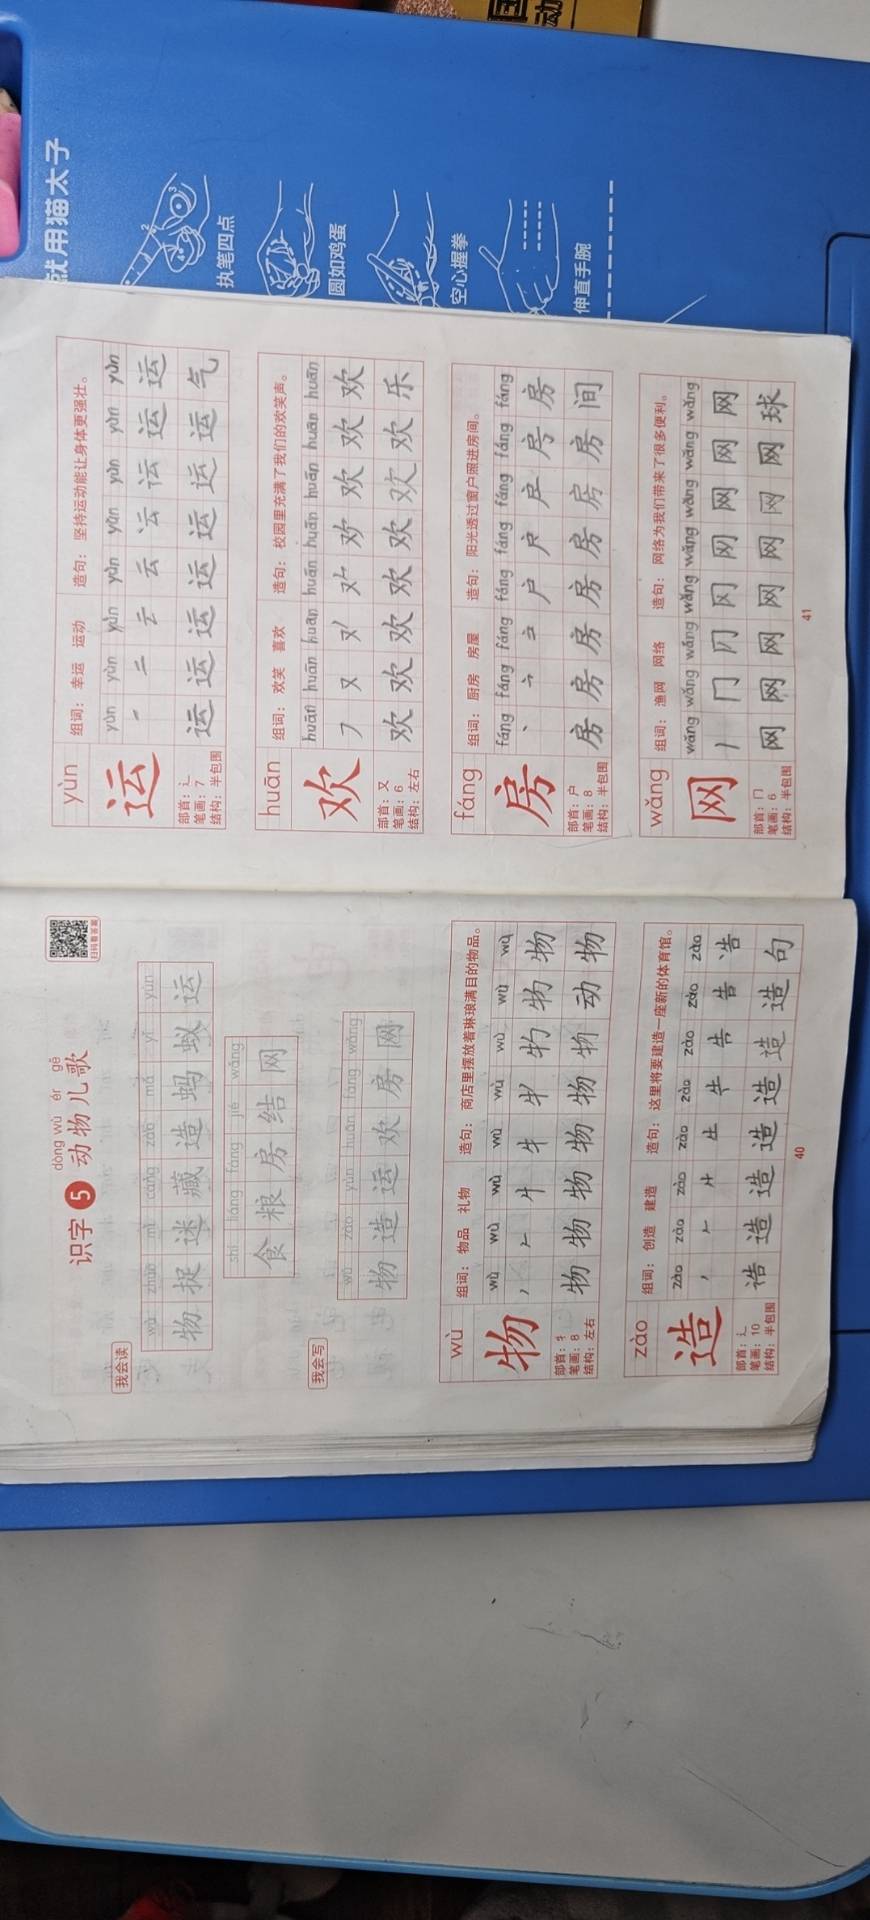 就用猫太子
执笔四点
圆如鸡蛋
空心握拳
伸直手腕
识字 5 dòng wù ér gē
动物儿歌
扫码看答案
我会读
wù zhuō mí cáng zào mǎ yǐ yùn
物 捉 迷 藏 造 蚂 蚁 运
shí liáng fáng jié wǎng
食 粮 房 结 网
我会写
wù zào yùn huān fáng wǎng
物 造 运 欢 房 网
wù 组词：物品 礼物 造句：商店里摆放着琳琅满目的物品。
wù wù wù wù wù wù wù
物
物 物 物 物 物 物 动 物
部首：牜
笔画：8
结构：左右
zào 组词：创造 建造 造句：这里将要建造一座新的体育馆。
zào zào zào zào zào zào zào
造
造 造 造 造 造 造 句
部首：辶
笔画：10
结构：半包围
40
yùn 组词：幸运 运动 造句：坚持运动能让身体更强壮。
yùn yùn yùn yùn yùn yùn yùn
运 一 二 云 云 运 运
运 运 运 运 运 运 运 气
部首：辶
笔画：7
结构：半包围
huān 组词：欢笑 喜欢 造句：校园里充满了我们的欢笑声。
huān huān huān huān huān huān huān
欢 又 欢 欢 欢
欢 欢 欢 欢 欢 欢 欢 乐
部首：又
笔画：6
结构：左右
fáng 组词：厨房 房屋 造句：阳光透过窗户照进房间。
fáng fáng fáng fáng fáng fáng fáng
房 户 房 房
房 房 房 房 房 房 房 间
部首：户
笔画：8
结构：半包围
wǎng 组词：渔网 网络 造句：网络为我们带来了很多便利。
wǎng wǎng wǎng wǎng wǎng wǎng wǎng wǎng
网 丨 冂 网 网 网 网
网 网 网 网 网 网 网 球
部首：冂
笔画：6
结构：半包围
41